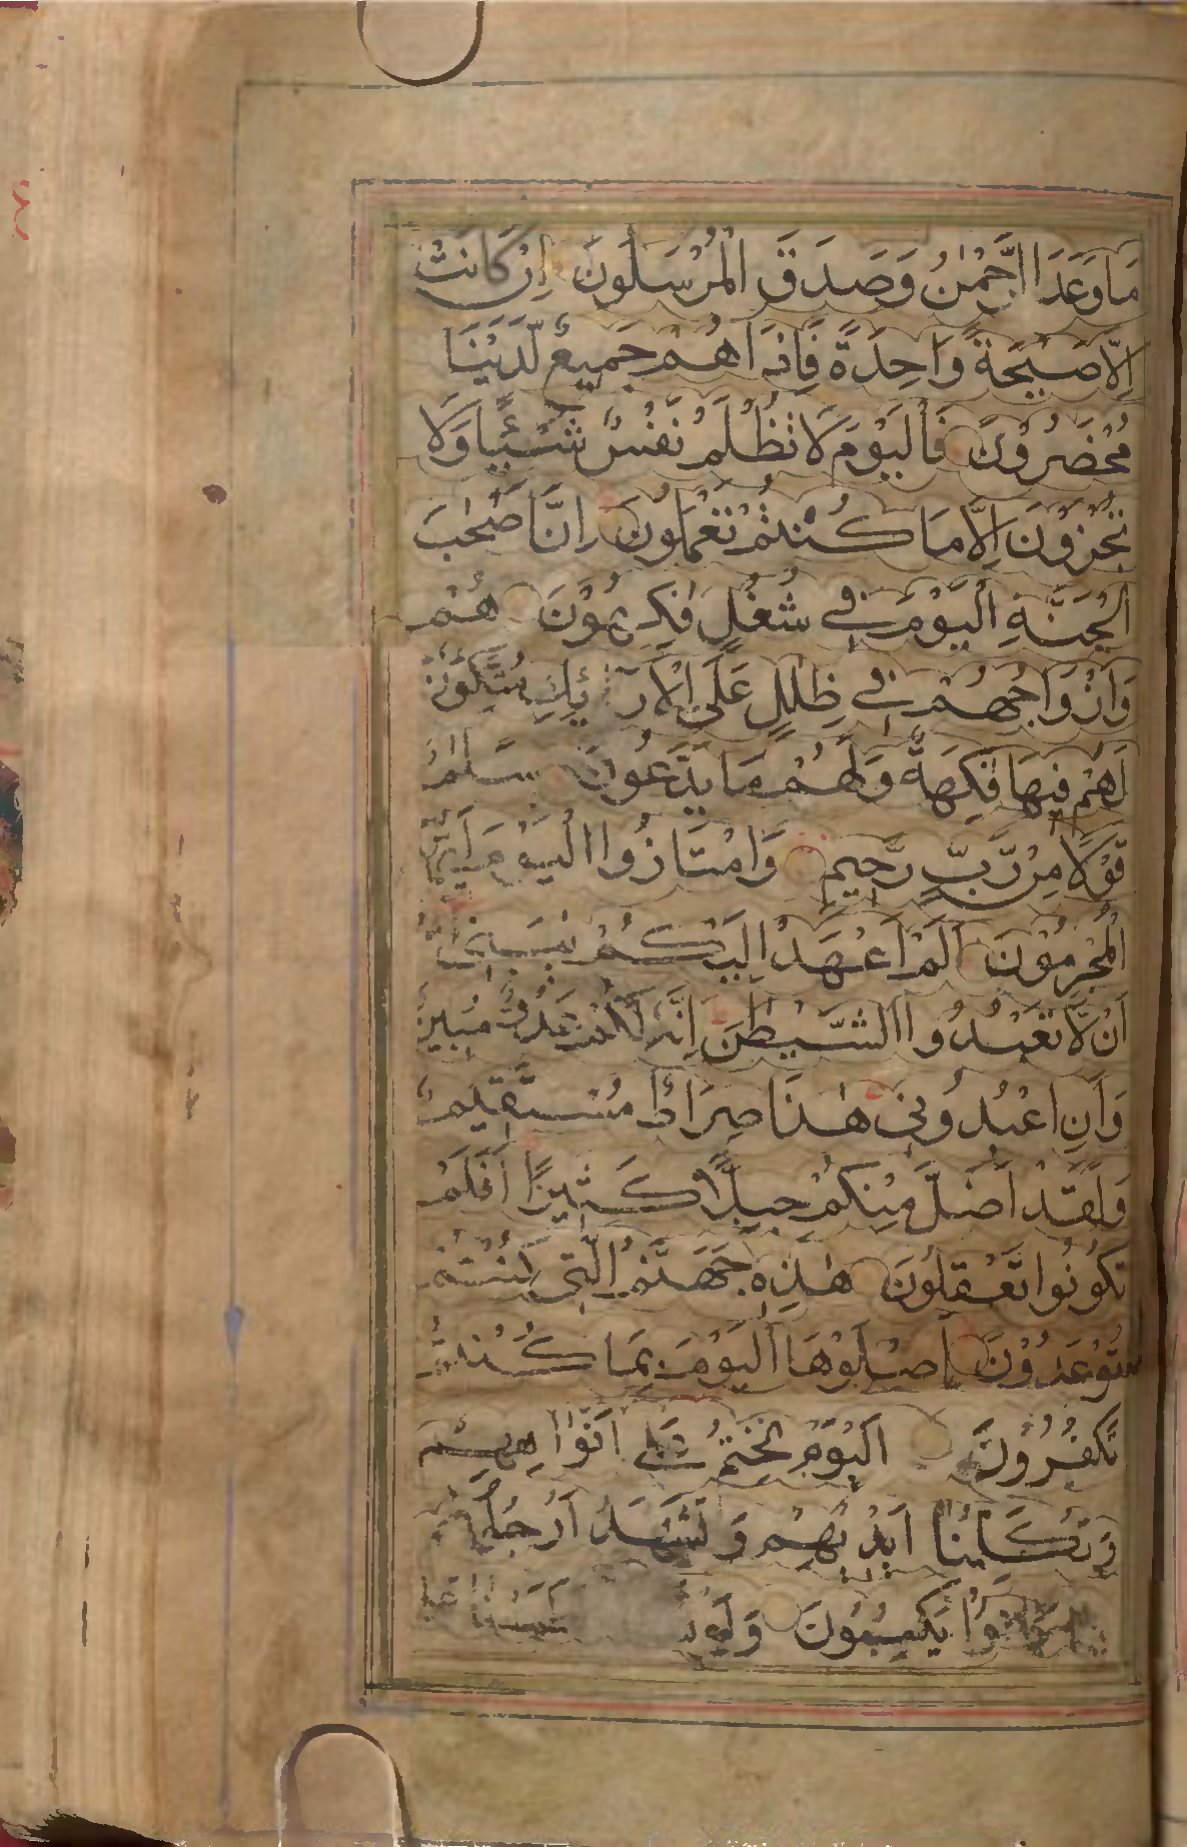 مَا وَعَدَ الرَّحْمٰنُ وَصَدَقَ الْمُرْسَلُونَ اِنْ كَانَتْ
اِلَّا صَيْحَةً وَاحِدَةً فَاِذَا هُمْ جَمِيعٌ لَّدَيْنَا
مُحْضَرُوْنَ فَالْيَوْمَ لَا تُظْلَمُ نَفْسٌ شَيْئًا وَلَا
تُجْزَوْنَ اِلَّا مَا كُنْتُمْ تَعْمَلُونَ اِنَّ اَصْحٰبَ
الْجَنَّةِ الْيَوْمَ فِي شُغُلٍ فٰكِهُوْنَ هُمْ
وَاَزْوَاجُهُمْ فِي ظِلٰلٍ عَلَى الْاَرَآئِكِ مُتَّكِئُونَ
لَهُمْ فِيهَا فَاكِهَةٌ وَلَهُمْ مَا يَدَّعُونَ سَلٰمٌ
قَوْلًا مِنْ رَّبٍّ رَّحِيمٍ وَامْتَازُوا الْيَوْمَ اَيُّهَا
الْمُجْرِمُوْنَ اَلَمْ اَعْهَدْ اِلَيْكُمْ
اَنْ لَّا تَعْبُدُوا الشَّيْطٰنَ اِنَّهُ لَكُمْ عَدُوٌّ مُبِينٌ
وَاَنِ اعْبُدُونِي هٰذَا صِرَاطٌ مُسْتَقِيمٌ
وَلَقَدْ اَضَلَّ مِنْكُمْ جِبِلًّا كَثِيرًا اَفَلَمْ
تَكُونُوا تَعْقِلُونَ هٰذِهِ جَهَنَّمُ الَّتِي كُنْتُمْ
تُوْعَدُوْنَ اِصْلَوْهَا الْيَوْمَ بِمَا كُنْتُمْ
تَكْفُرُوْنَ اَلْيَوْمَ نَخْتِمُ عَلٰى اَفْوَاهِهِمْ
وَتُكَلِّمُنَا اَيْدِيهِمْ وَتَشْهَدُ اَرْجُلُهُمْ
كَانُوْا يَكْسِبُوْنَ وَلَوْ